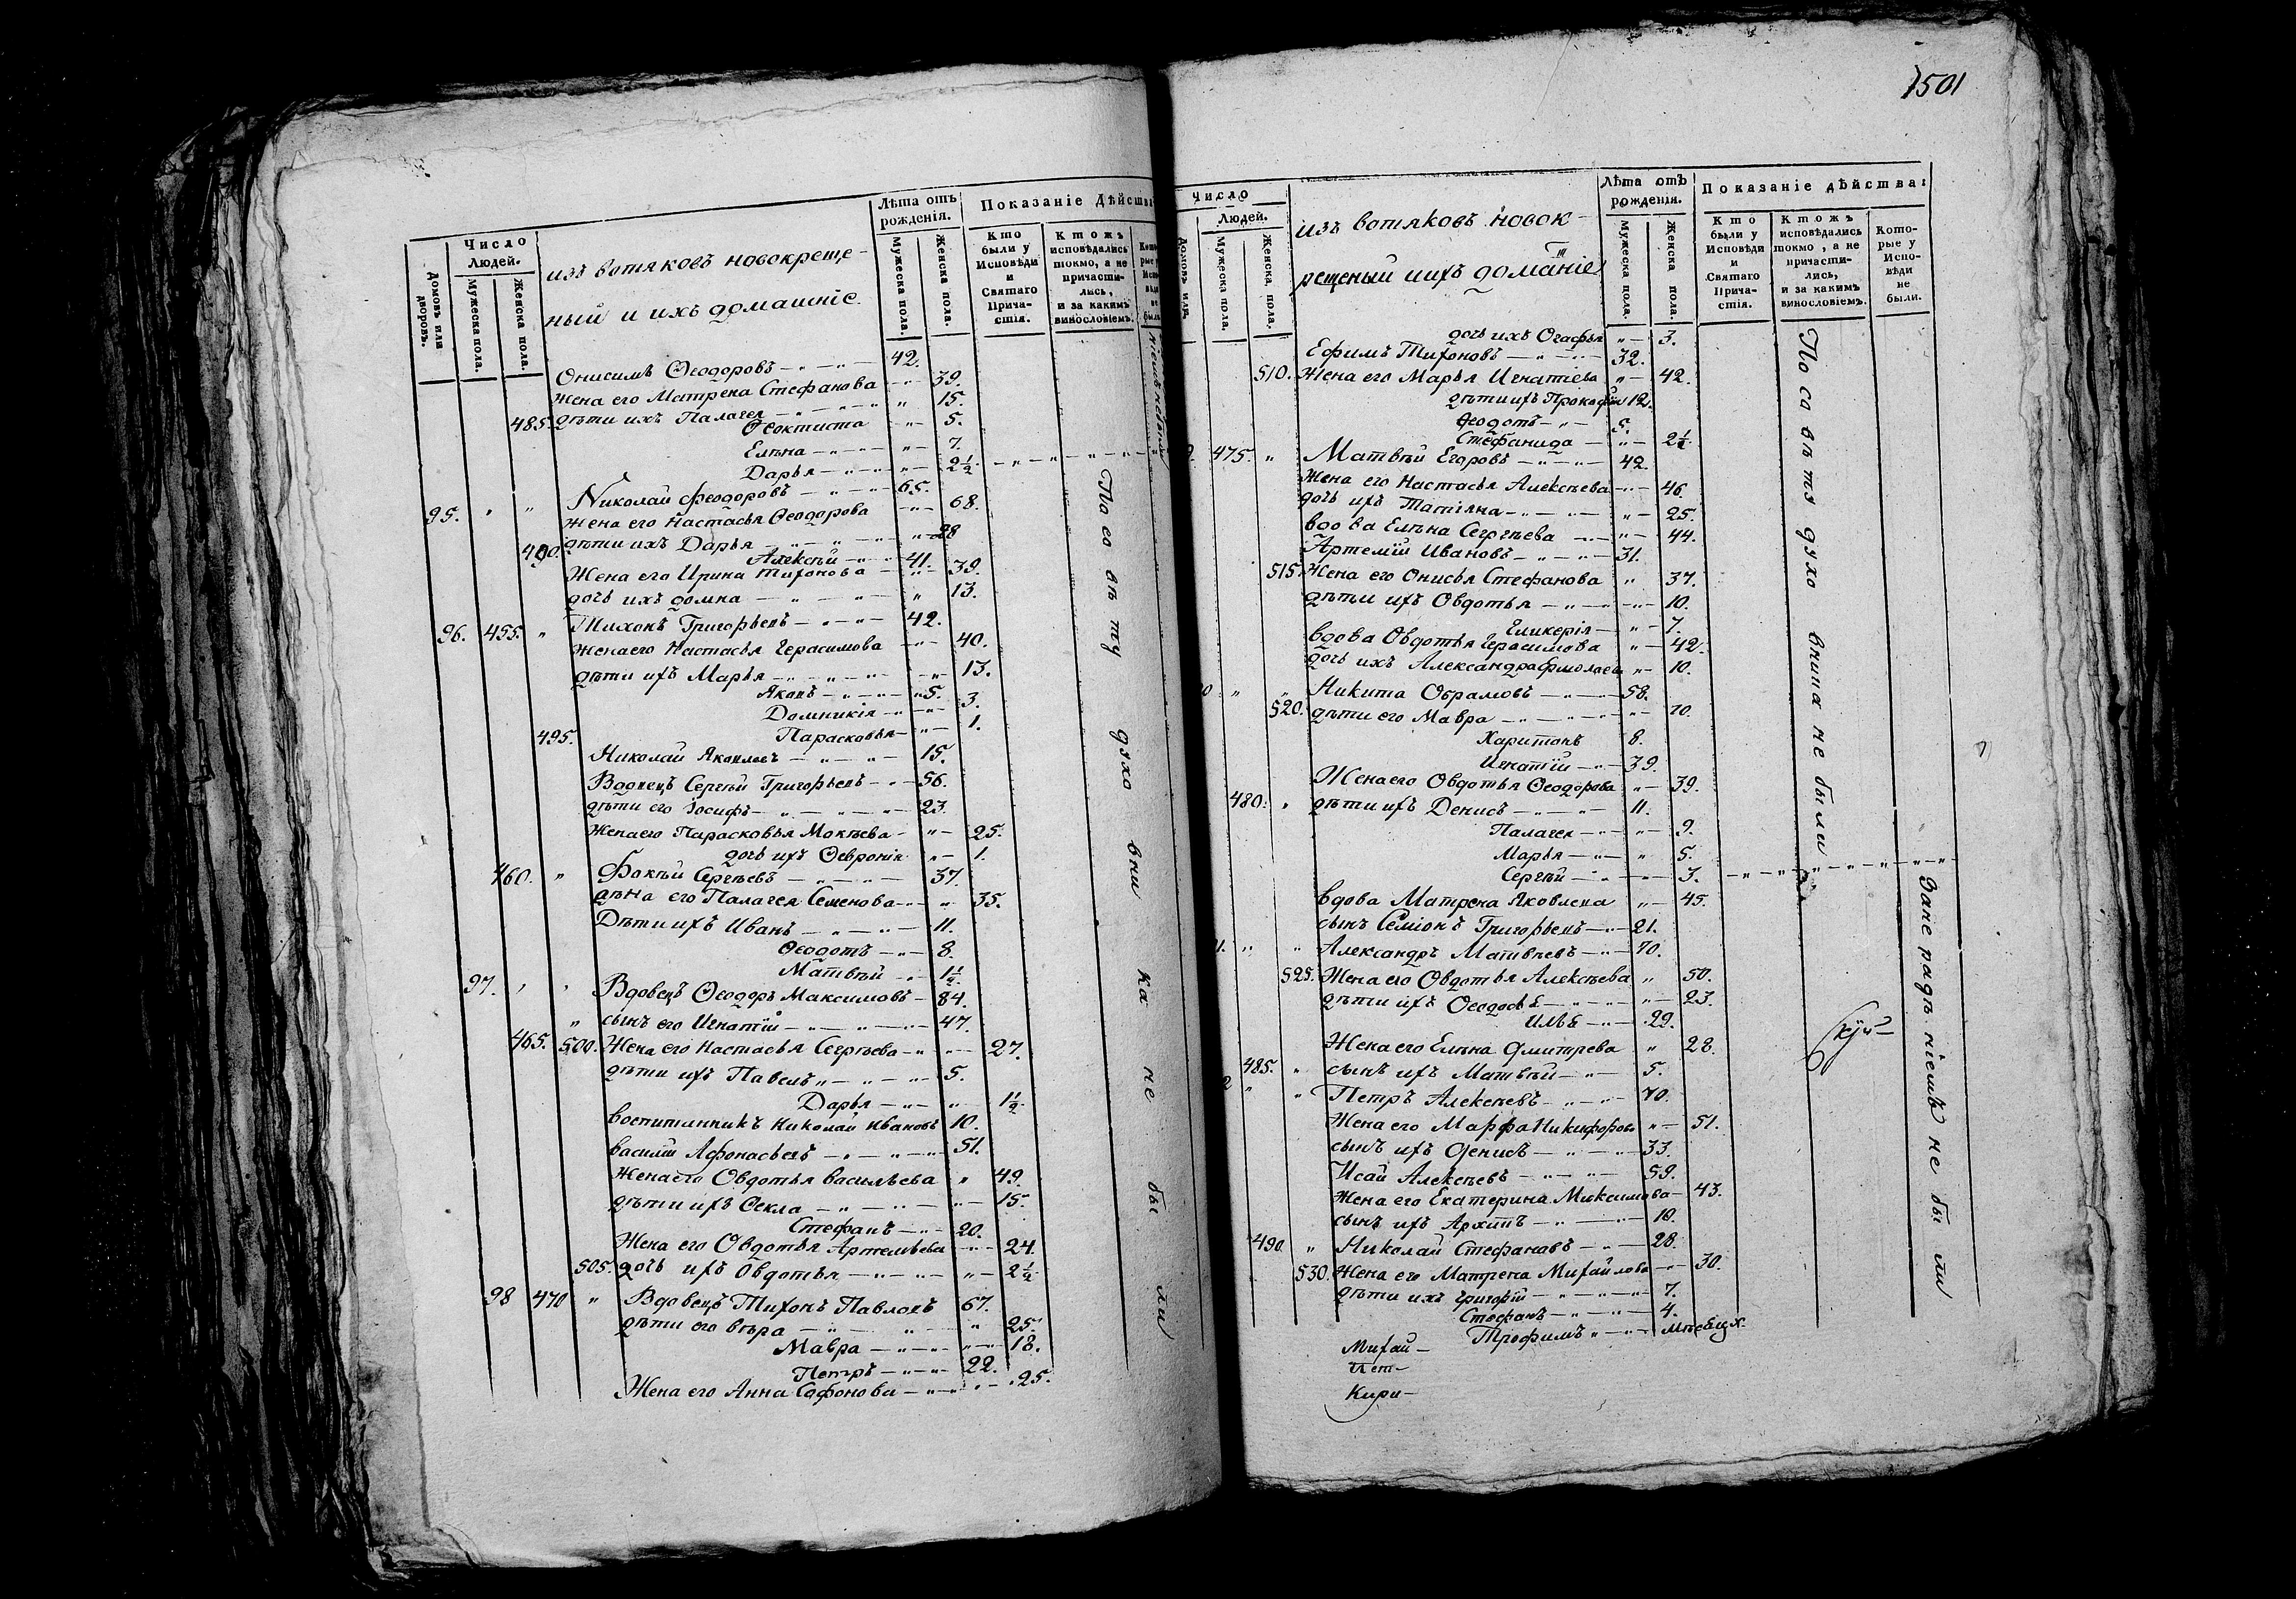 Число
Людей.
Домовъ или дворовъ.
Мужеска пола.
Женска пола.
изъ вотяковъ новокреще-
ный и ихъ домашніе.
Лѣта отъ рожденія.
Мужеска пола.
Женска пола.
Показаніе Дѣйства
Кто были у Исповѣди и Святаго Прича-стія.
Ктожъ исповѣдались токмо, а не причасти-лись, и за какимъ винословіемъ.
Онисимъ Ѳеодоровъ 42.
жена его Матрена Стефанова 39.
дѣти ихъ Палагея 15.
485. Ѳеоктиста 5.
Елѣна 7.
Дарья 2½
95. Николай Феодоровъ 65.
жена его Настасья Ѳеодорова 68.
дѣти ихъ Дарья 28
490. Алексѣй 41.
Жена его Ирина Тихонова 39.
дочь ихъ домна 13.
96. 455. Тихонъ Григорьевъ 42.
жена его Настасья Герасимова 40.
дѣти ихъ Марья 13.
Яковъ 5.
Домникія 3.
495. Парасковья 1.
Николай Яковлевъ 15.
Вдовецъ Сергѣй Григорьевъ 56.
дѣти его Іосифъ 23.
жена его Парасковья Мокѣева 25.
дочь ихъ Ѳевронія 1.
460. Фокѣй Сергѣевъ 37.
жена его Палагея Семенова 35.
Дѣти ихъ Иванъ 11.
Ѳеодотъ 8.
Матвѣй 1½.
97. Вдовецъ Ѳеодоръ Максимовъ 84.
сынъ его Игнатій 47.
465. 500. Жена его Настасья Сергѣева 27.
дѣти ихъ Павелъ 5.
Дарья 1½.
воспитанникъ Николай Ивановъ 10.
василій Афонасьевъ 51.
Жена его Овдотья васильева 49.
дѣти ихъ Ѳекла 15.
Стефанъ 20.
Жена его Овдотья Артемьева 24.
505. дочь ихъ Овдотья 2½
98 470 Вдовецъ Тихонъ Павловъ 67.
дѣти его вѣра 25.
Мавра 18.
Петръ 22.
Жена его Анна Софонова 25.
По со вѣ ту духо вни ка не бы ли
1501
Число
Людей.
Мужеска пола.
Женска пола.
изъ вотяковъ новок-
рещеный ихъ домашніе
Лѣта отъ рожденія.
Мужеска пола.
Женска пола.
Показаніе дѣйства:
Кто были у Исповѣди и Святаго Прича-стія.
Ктожъ исповѣдались токмо, а не причасти-лись, и за какимъ винословіемъ.
Кото-рые у Испо-вѣди не были.
дочь ихъ Огафья 3.
Ефимъ Тихоновъ 32.
510. Жена его Марья Игнатіева 42.
дѣти ихъ Прокофій 12.
Ѳеодотъ 5.
Стефанида 2½
475. Матвѣй Егоровъ 42.
Жена его Настасья Алексѣева 46.
дочь ихъ Татіяна 25.
вдова Елѣна Сергѣева 44.
Артемій Ивановъ 31.
515. Жена его Онисья Стефанова 37.
дѣти ихъ Овдотья 10.
Гликерія 7.
вдова Овдотья Герасимова 42.
дочь ихъ Александра Ермолаева 10.
Никита Обрамовъ 58.
520. дѣти его Мавра 10.
Харитонъ 8.
Игнатій 39.
Жена его Овдотья Ѳеодорова 39.
480. дѣти ихъ Денисъ 11.
Палагея 9.
Марья 5.
Сергѣй 3.
вдова Матрена Яковлева 45.
сынъ Семіонъ Григорьевъ 21.
Александръ Матвѣевъ 70.
525. Жена его Овдотья Алексѣева 50.
дѣти ихъ Ѳеодосья 23.
Илья 29.
Жена его Елѣна Дмитрева 28.
485. сынъ ихъ Матвѣй 5.
Петръ Алексѣевъ 70.
Жена его Марфа Никифорова 51.
сынъ ихъ Денисъ 33.
Исай Алексѣевъ 59.
Жена его Екатерина Максимова 43.
сынъ ихъ Архипъ 10.
490. Николай Стефановъ 28.
530. Жена его Матрена Михайлова 30.
дѣти ихъ Григорій 7.
Стефанъ 4.
Трофимъ
Михай-
Пет-
Кири-
По со вѣ ту духо вника не были
Зане радѣ ніемъ не бы ли